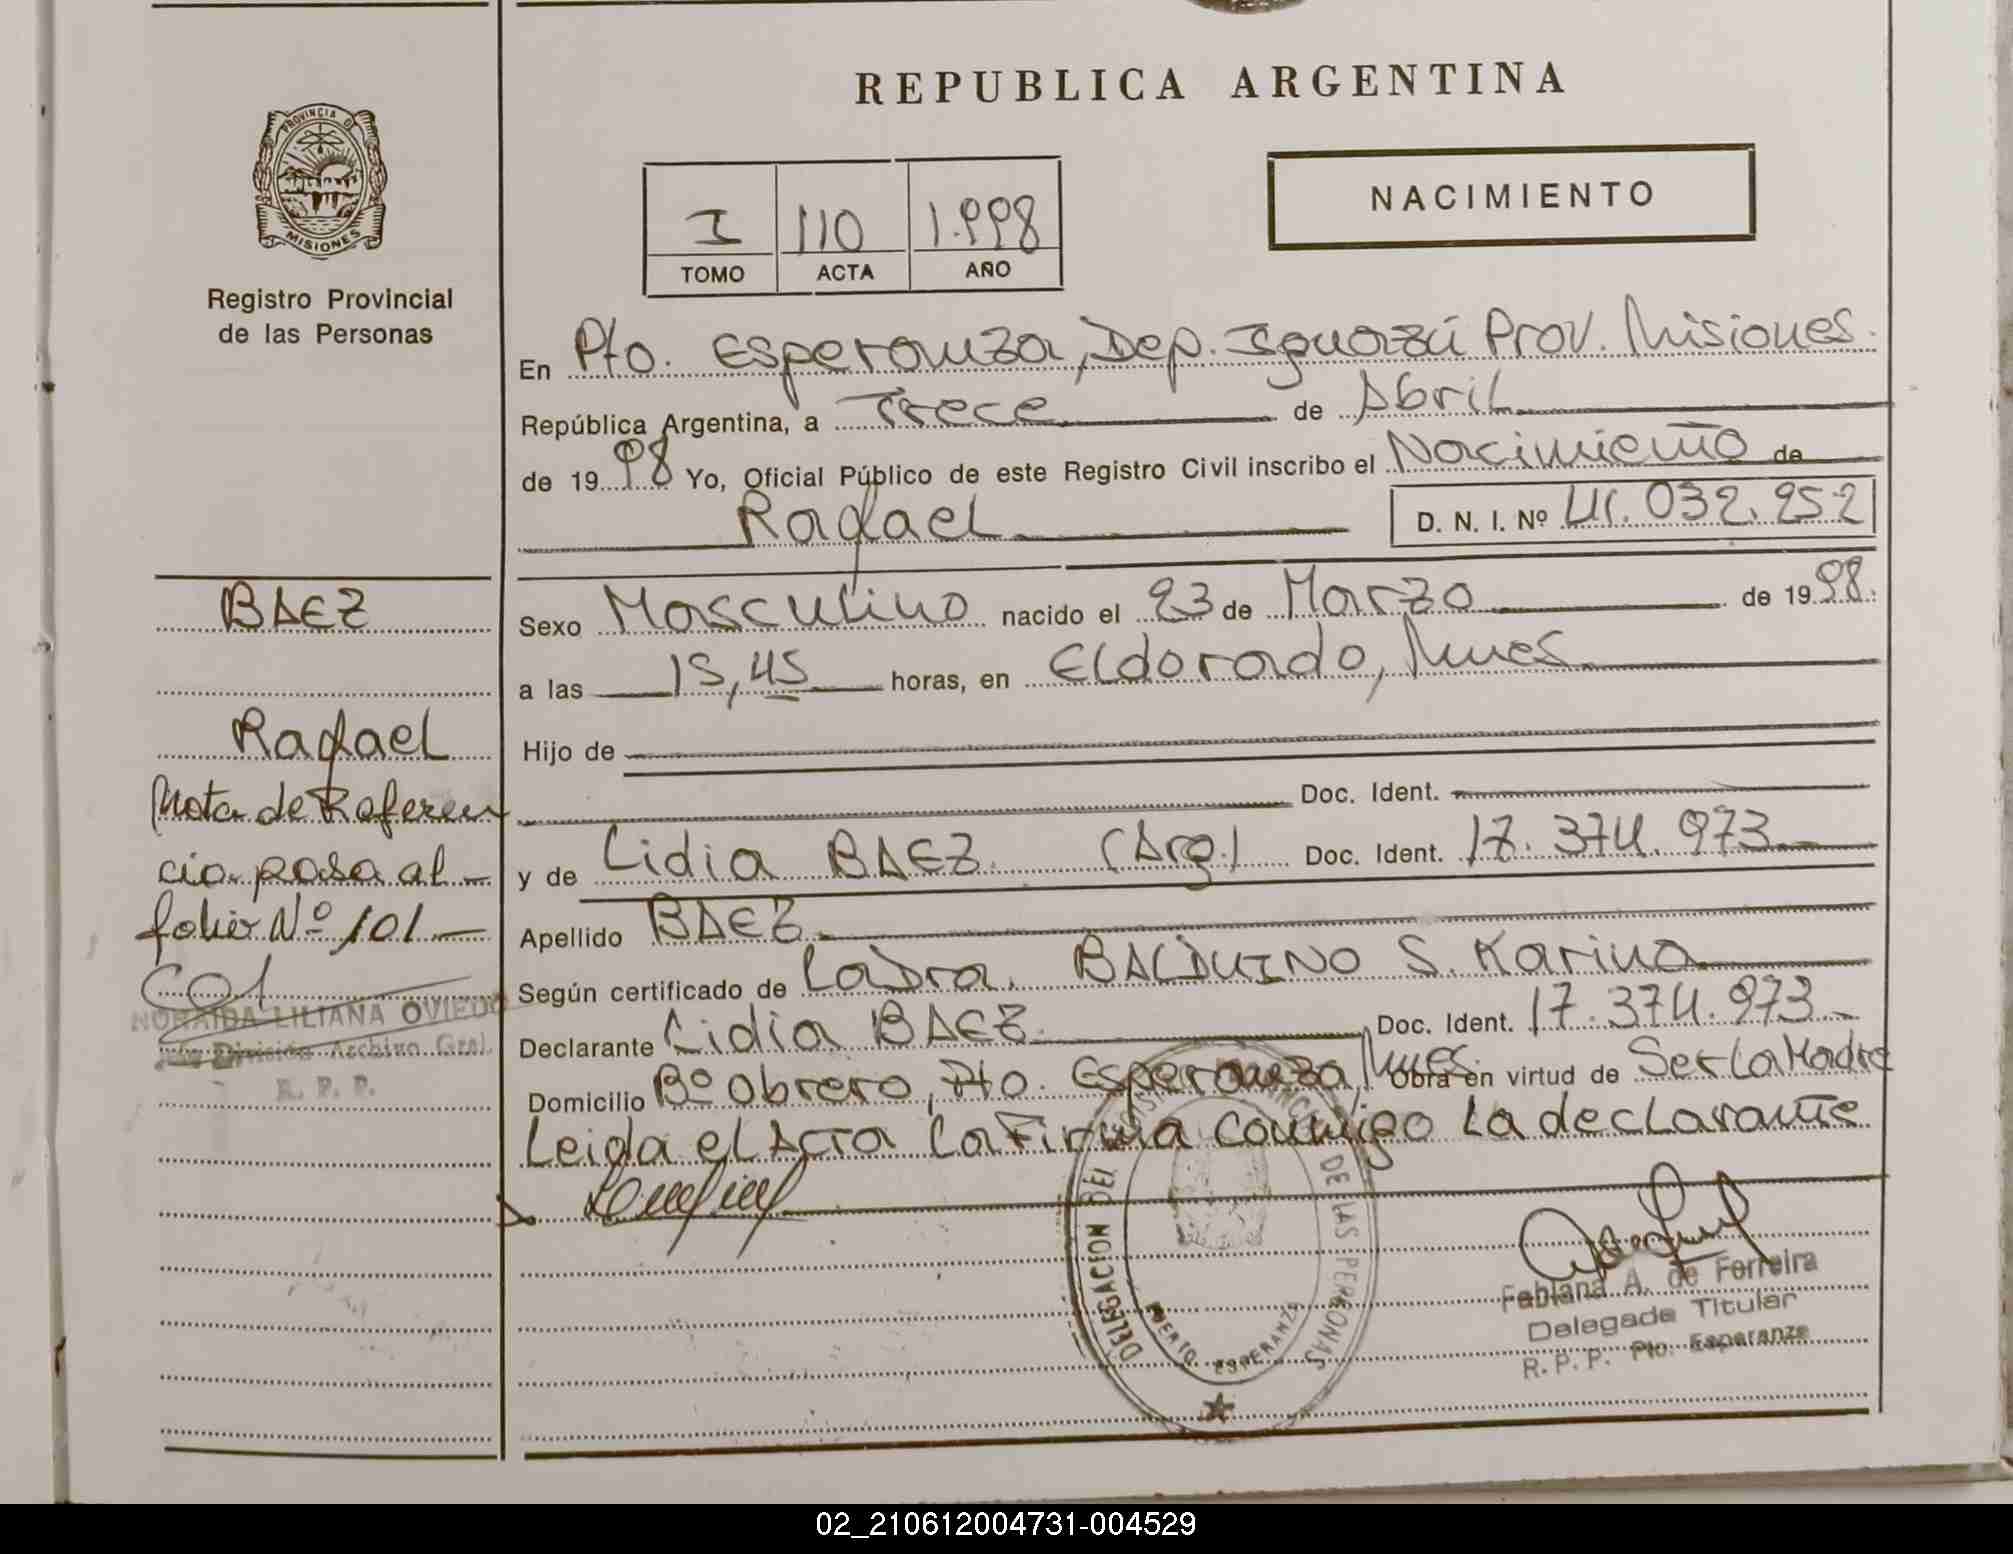 REPUBLICA ARGENTINA
PROVINCIA D
MISIONES
Registro Provincial
de las Personas
I 110 1.998
TOMO ACTA AÑO
NACIMIENTO
En Pto. Esperanza, Dep. Iguazú Prov. Misiones.
República Argentina, a Trece de Abril
de 1998 Yo, Oficial Público de este Registro Civil inscribo el Nacimiento de
Rafael D. N. I. Nº 41.032.252
Sexo Masculino nacido el 23 de Marzo de 1998.
a las 15,45 horas, en Eldorado, Mnes
Hijo de
Doc. Ident.
y de Lidia BAEZ (Arg) Doc. Ident. 17.374.973
Apellido BAEZ
Según certificado de La Dra. BALDUINO S. Karina
Declarante Lidia BAEZ Doc. Ident. 17.374.973
Domicilio Bº Obrero, Pto. Esperanza, Mnes. Obra en virtud de Ser La Madre
Leida el Acta La Firma Conmigo La declarante
BAEZ
Rafael
Nota de Referen
cia pasa al
folio Nº 101
NORAIDA LILIANA OVIEDO
División Archivo Gral.
R. P. P.
DELEGACION DEL DE LAS PERSONAS
PUERTO ESPERANZA
Fabiana A. de Ferreira
Delegada Titular
R. P. P. Pto. Esperanza
02_210612004731-004529